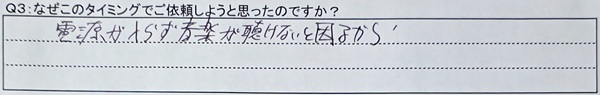 Q3:なぜこのタイミングでご依頼しようと思ったのですか?
電源が入らず音楽が聴けないと困るから